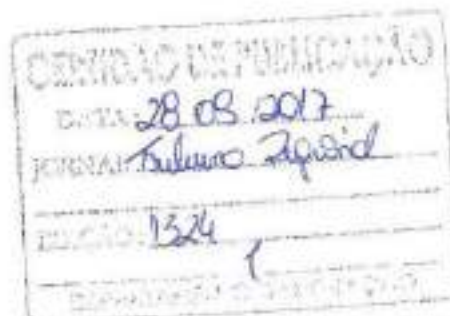 CERTIDÃO DE PUBLICAÇÃO
DATA: 28 09 2017
JORNAL: Tribuna Regional
EDIÇÃO: 1324